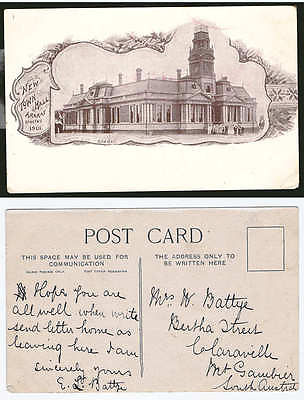 NEW
TOWN
HALL
ARARAT
1901
POST CARD
THIS SPACE MAY BE USED FOR
COMMUNICATION
THE ADDRESS ONLY TO
BE WRITTEN HERE
INLAND POSTAGE ONLY.
Hope you are
all well when write
send letter home as
leaving here I am
Sincerely yours
E. Battye
Mrs W. Battye
Bertha Street
Claraville
Mt Gambier
South Austral